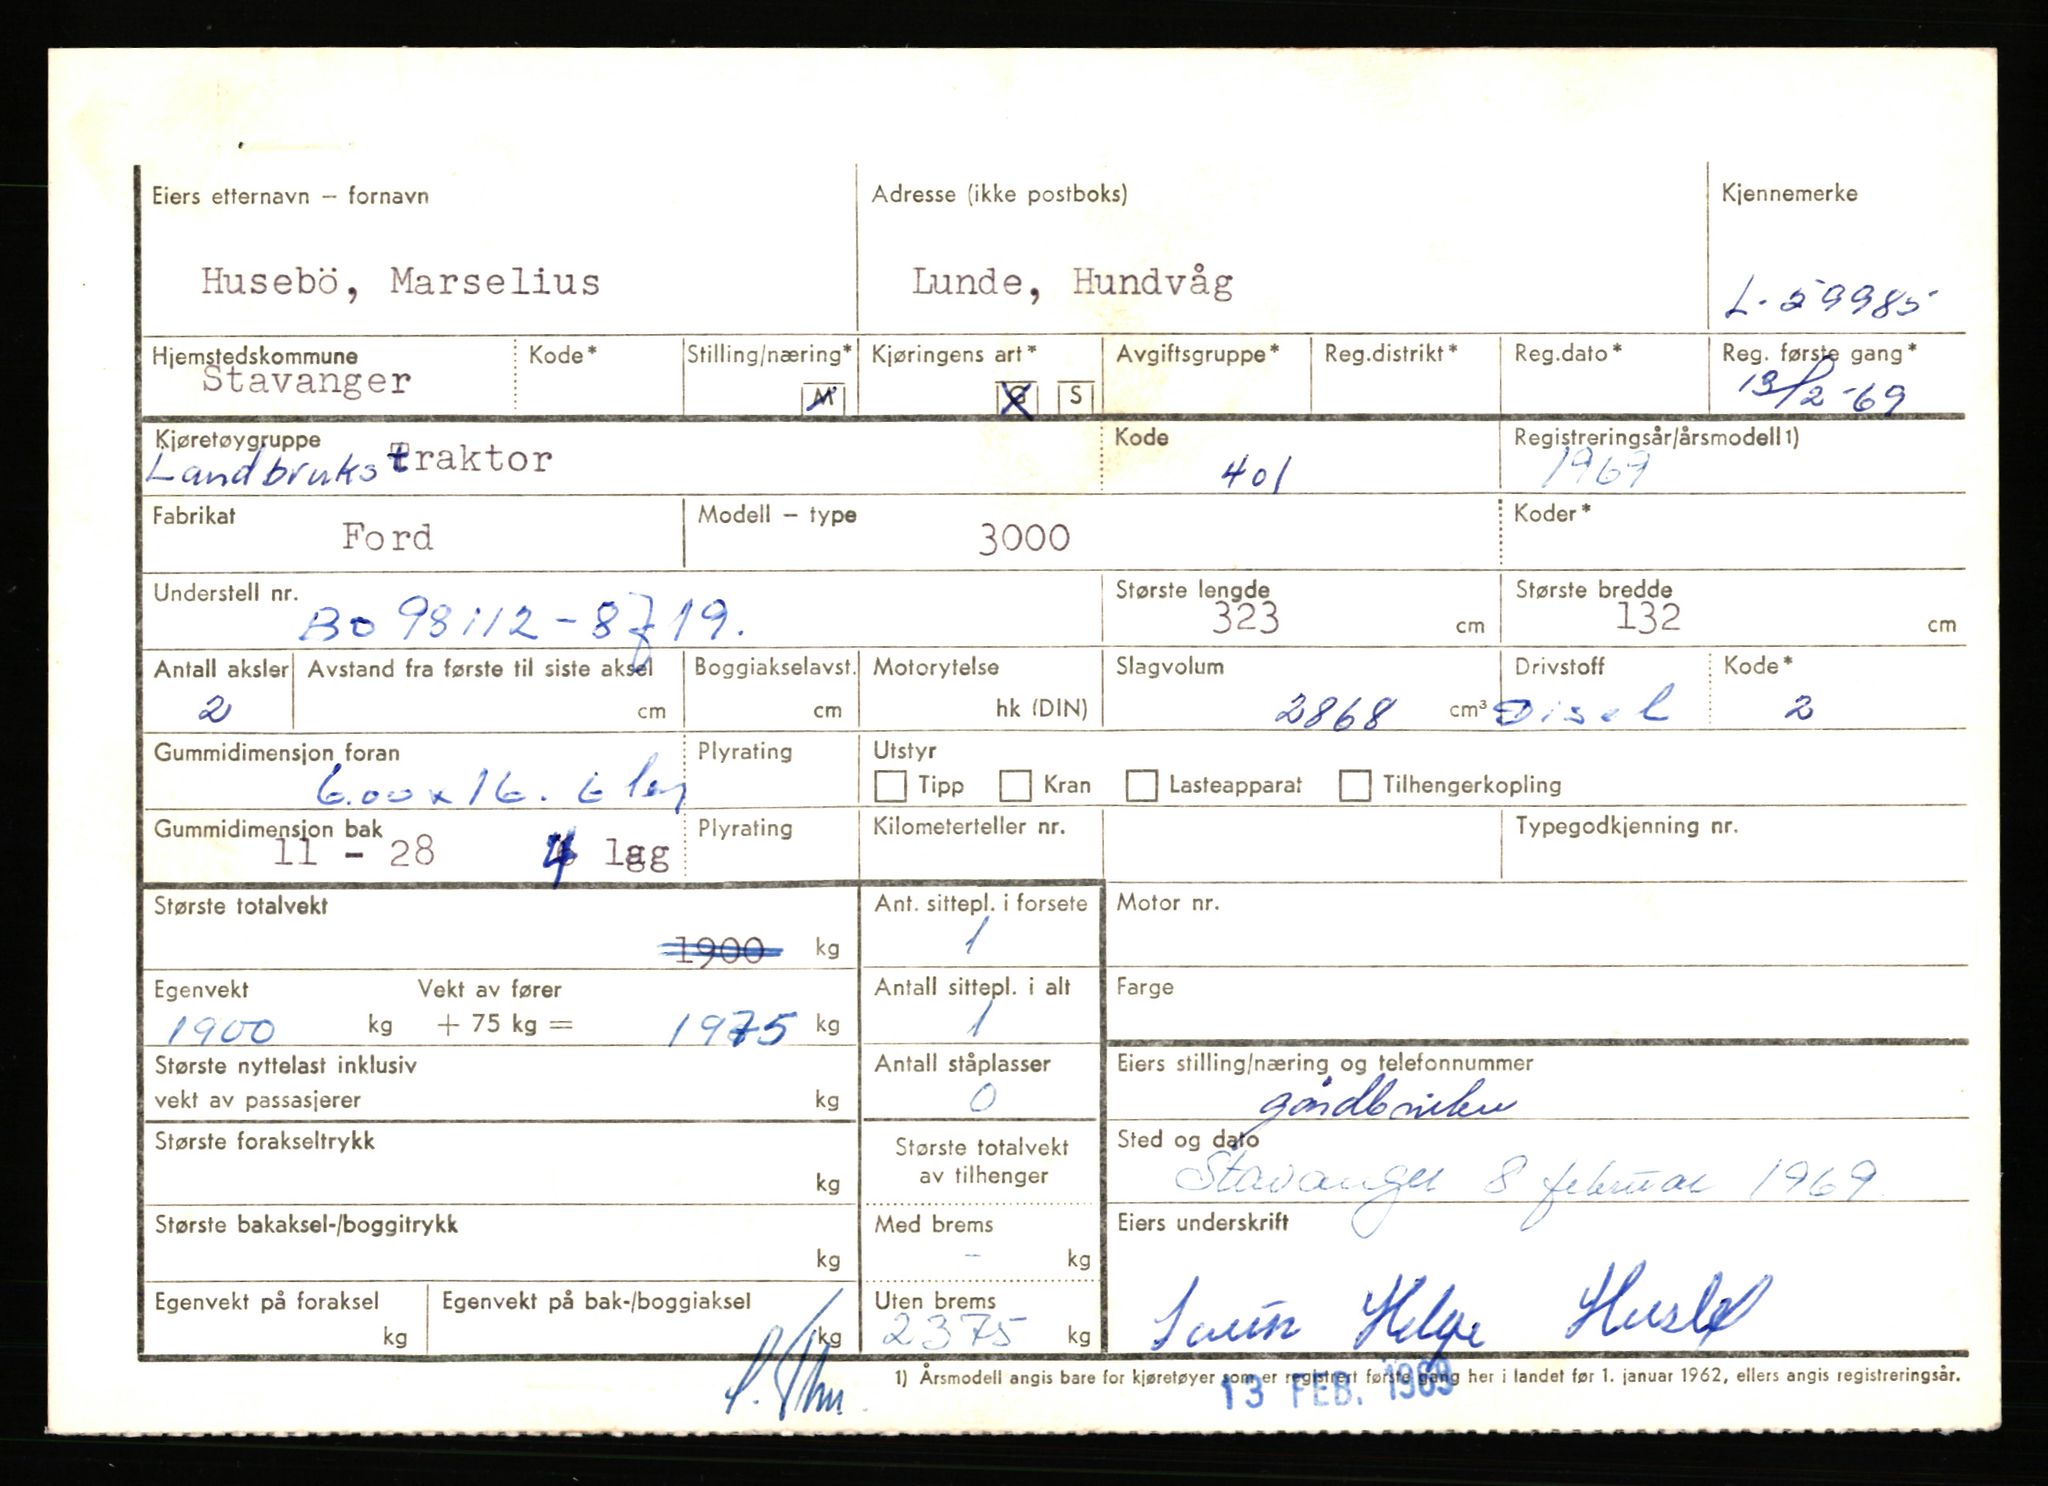 Eiers etternavn – fornavn Adresse (ikke postboks) Kjennemerke
Husebö, Marselius Lunde, Hundvåg L-59985
Hjemstedskommune Kode* Stilling/næring* Kjøringens art* Avgiftsgruppe* Reg.distrikt* Reg.dato* Reg. første gang*
Stavanger M S 13/2-69
Kjøretøygruppe Kode Registreringsår/årsmodell 1)
Landbrukstraktor 401 1969
Fabrikat Modell – type Koder*
Ford 3000
Understell nr. Største lengde Største bredde
Bo 98112-8J19. 323 cm 132 cm
Antall aksler Avstand fra første til siste aksel Boggiakselavst. Motorytelse Slagvolum Drivstoff Kode*
2 cm cm hk (DIN) 2868 cm³ Disel 2
Gummidimensjon foran Plyrating Utstyr
6.00x16. 6 lag Tipp Kran Lasteapparat Tilhengerkopling
Gummidimensjon bak Plyrating Kilometerteller nr. Typegodkjenning nr.
11 - 28 4 lag
Største totalvekt Ant. sittepl. i forsete Motor nr.
1900 kg 1
Egenvekt Vekt av fører Antall sittepl. i alt Farge
1900 kg + 75 kg = 1975 kg 1
Største nyttelast inklusiv Antall ståplasser Eiers stilling/næring og telefonnummer
vekt av passasjerer kg 0 gårdbruker
Største forakseltrykk Største totalvekt Sted og dato
kg av tilhenger Stavanger 8 februar 1969
Største bakaksel-/boggitrykk Med brems Eiers underskrift
kg - kg
Egenvekt på foraksel Egenvekt på bak-/boggiaksel Uten brems
kg kg 2375 kg Helge Husebø
1) Årsmodell angis bare for kjøretøyer som er registrert første gang her i landet før 1. januar 1962, ellers angis registreringsår.
13 FEB. 1969